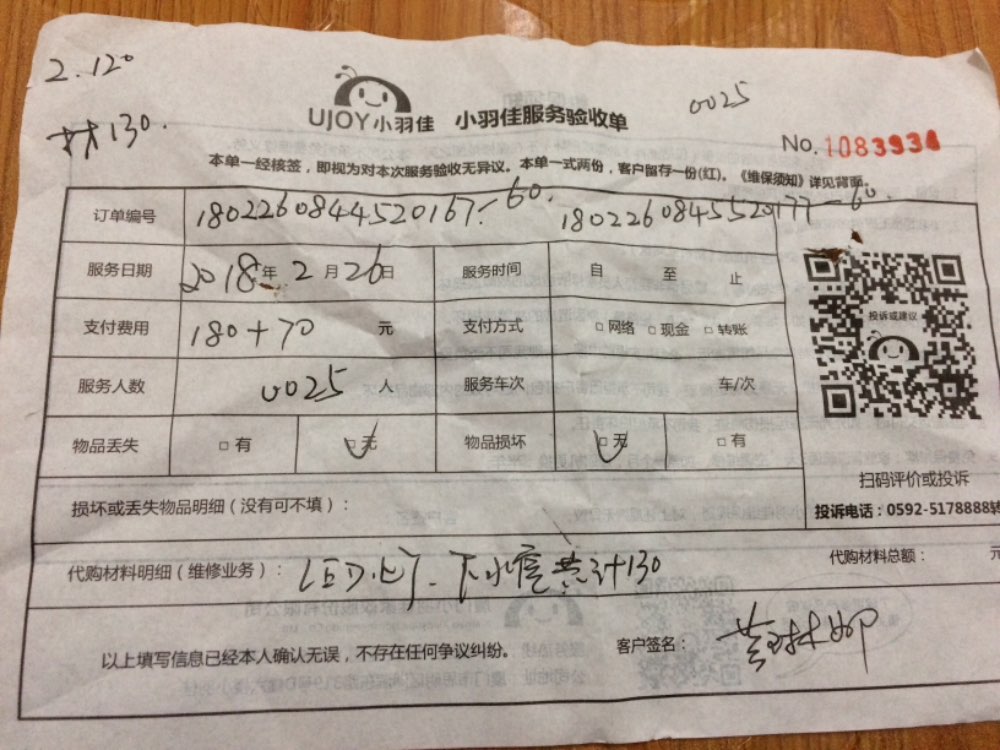 2.120
材130.
UJOY小羽佳 小羽佳服务验收单
0025
No.1083934
本单一经核签，即视为对本次服务验收无异议。本单一式两份，客户留存一份(红)。《维保须知》详见背面。
订单编号 1802260844520167-60. 1802260845520177-60.
服务日期 2018年2月26日 服务时间 自 至 止
支付费用 180+70 元 支付方式 □网络 □现金 □转账
投诉或建议
服务人数 0025 人 服务车次 车/次
物品丢失 □有 □无 物品损坏 □无 □有
扫码评价或投诉
损坏或丢失物品明细（没有可不填）：
投诉电话：0592-5178888转
代购材料明细（维修业务）： LED灯. 下水管共计130 代购材料总额： 元
以上填写信息已经本人确认无误，不存在任何争议纠纷。 客户签名：